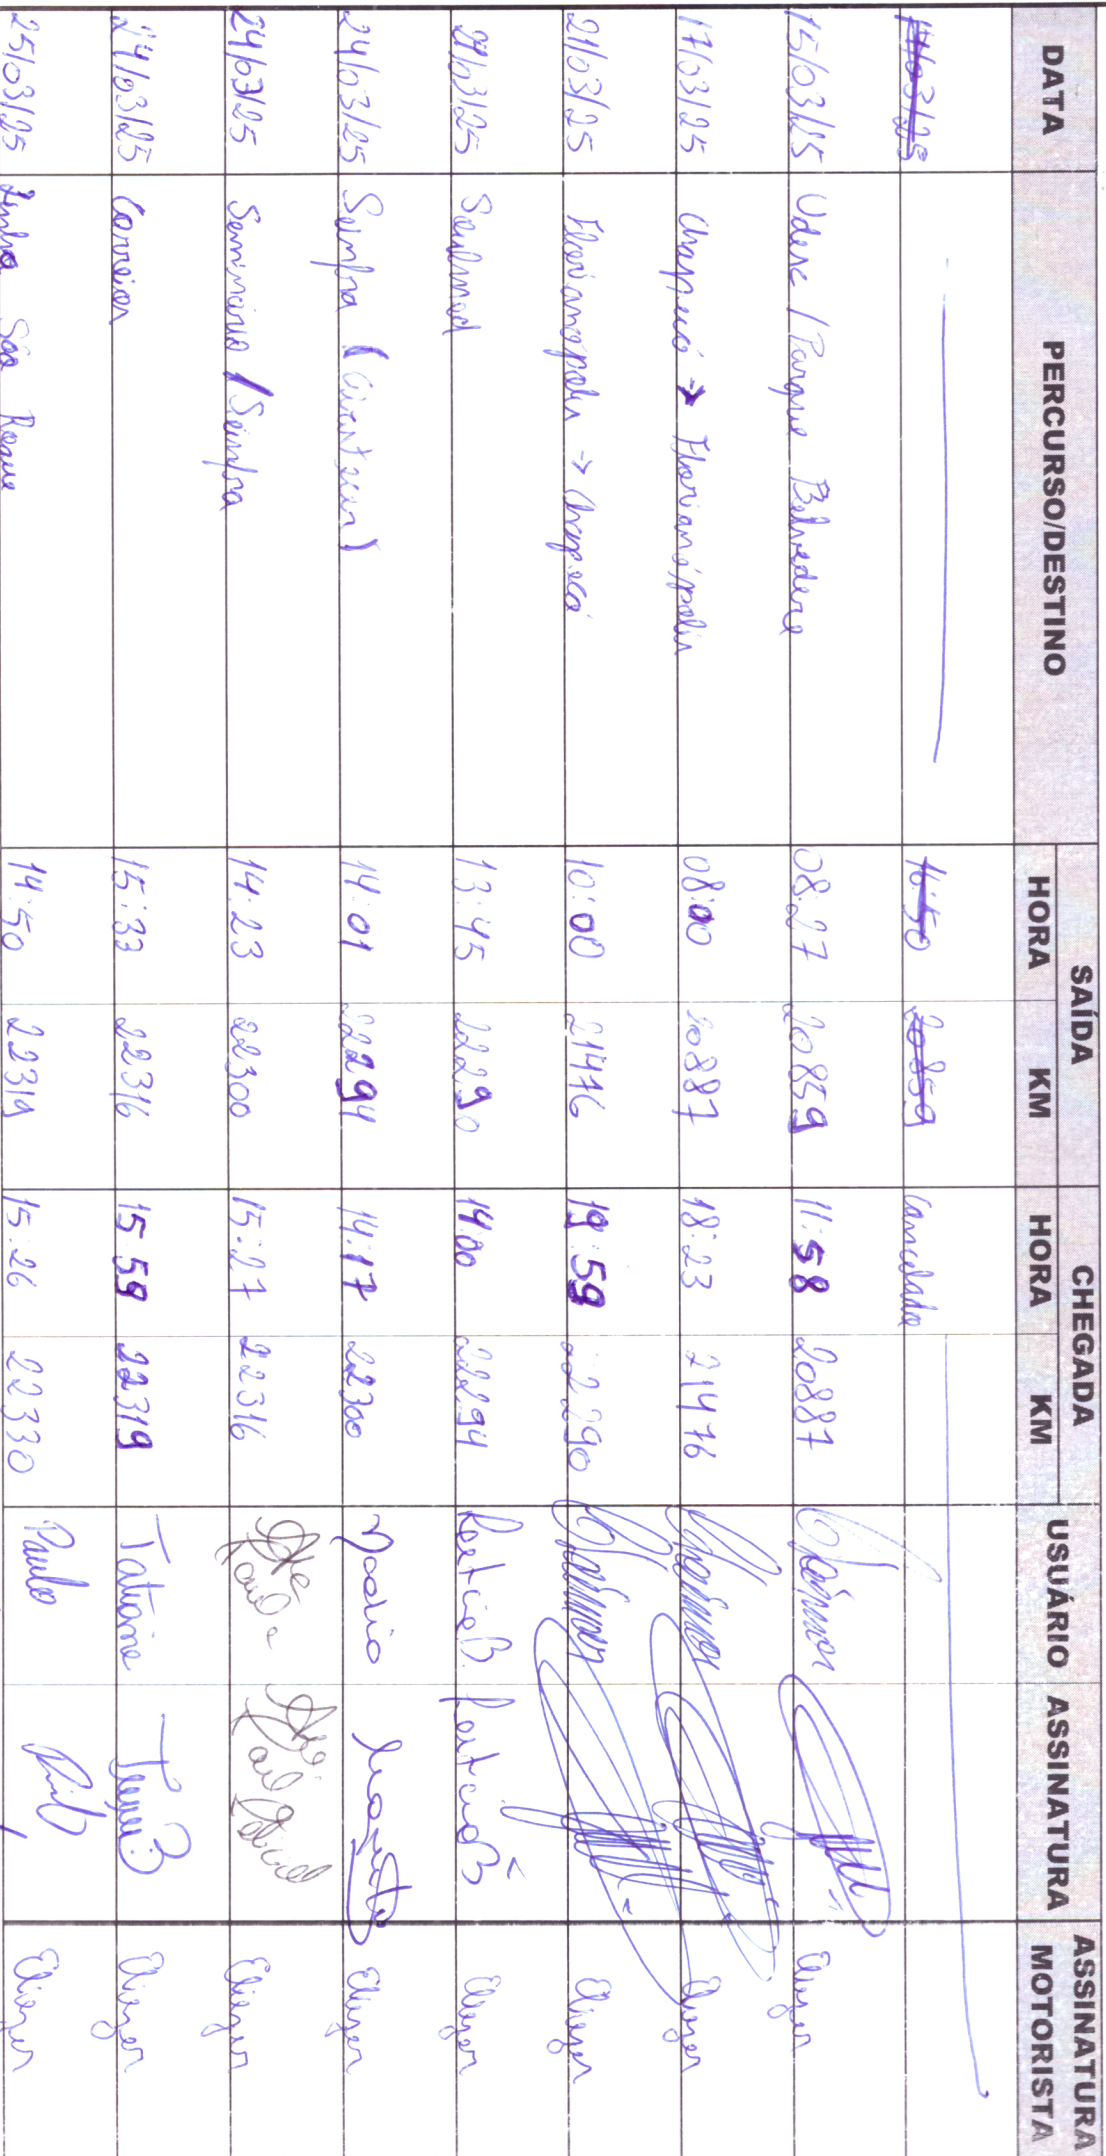 DATA PERCURSO/DESTINO SAÍDA CHEGADA USUÁRIO ASSINATURA ASSINATURA MOTORISTA
HORA KM HORA KM
16:50 20859 Cancelado
15/03/25 Udesc / Parque Belvedere 08:27 20859 11:58 20887 Eliezer
17/03/25 Chapecó → Florianópolis 08:00 20887 18:23 21476 Eliezer
21/03/25 Florianópolis → Chapecó 10:00 21476 19:59 22290 Eliezer
13:45 22290 14:00 22294 Eliezer
24/03/25 Seinfra 14:01 22294 14:17 22300 Eliezer
24/03/25 Seminário / Seinfra 14:23 22300 15:27 22316 Eliezer
24/03/25 Correios 15:33 22316 15:59 22319 Tatiane Eliezer
25/03/25 Linha São Roque 14:50 22319 15:26 22330 Paulo Eliezer